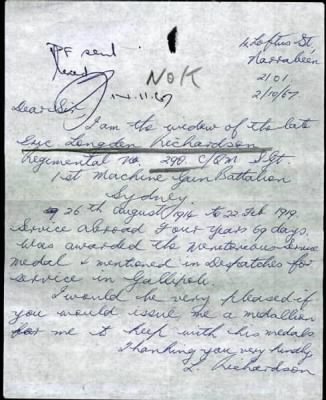 14 Loftus St,
Narrabeen
2101.
2/10/67
PF sent
14.11.67
NOK
Dear Sir,
I am the widow of the late
Eric Longden Richardson
Regimental No. 290. C/QM Sgt.
1st Machine Gun Battalion
Sydney.
26th August 1914 to 22 Feb 1919.
Service abroad Four years 69 days.
was awarded the Meritorious Service
medal & mentioned in Despatches for
service in Gallipoli.
I would be very pleased if
you would issue me a medallion
for me to keep with his medals
Thanking you very kindly
L Richardson